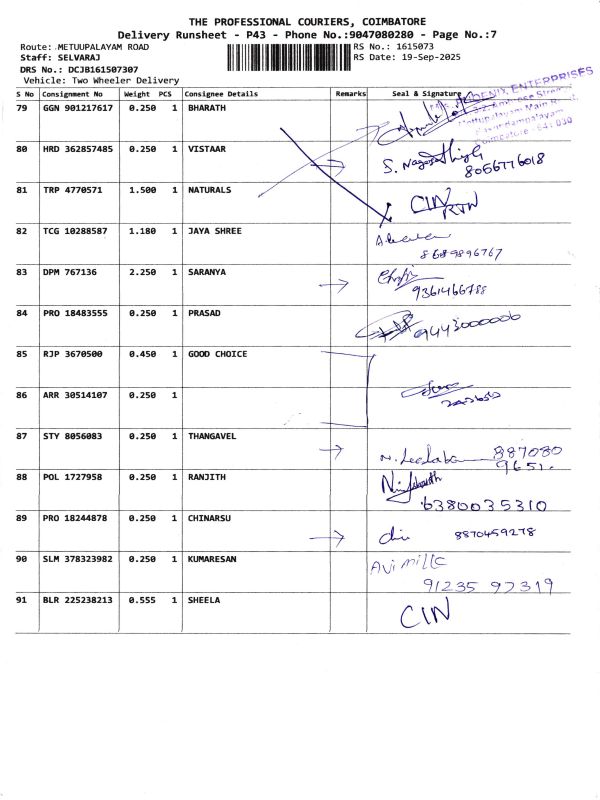 THE PROFESSIONAL COURIERS, COIMBATORE
Delivery Runsheet - P43 - Phone No.:9047080280 - Page No.:7
Route: METUUPALAYAM ROAD RS No.: 1615073
Staff: SELVARAJ RS Date: 19-Sep-2025
DRS No.: DCJB161507307
Vehicle: Two Wheeler Delivery
S No Consignment No Weight PCS Consignee Details Remarks Seal & Signature
ENTERPRISES
79 GGN 901217617 0.250 1 BHARATH
Mettupalayam Main
80 HRD 362857485 0.250 1 VISTAAR
8056776018
81 TRP 4770571 1.500 1 NATURALS CIN
RTN
82 TCG 10288587 1.180 1 JAYA SHREE
8689896767
83 DPM 767136 2.250 1 SARANYA
9361466788
84 PRO 18483555 0.250 1 PRASAD 9443000006
85 RJP 3670500 0.450 1 GOOD CHOICE
86 ARR 30514107 0.250 1
87 STY 8056083 0.250 1 THANGAVEL
887080
9651
88 POL 1727958 0.250 1 RANJITH
6380035310
89 PRO 18244878 0.250 1 CHINARSU
8870459278
90 SLM 378323982 0.250 1 KUMARESAN Avi mills
91235 97319
91 BLR 225238213 0.555 1 SHEELA CIN